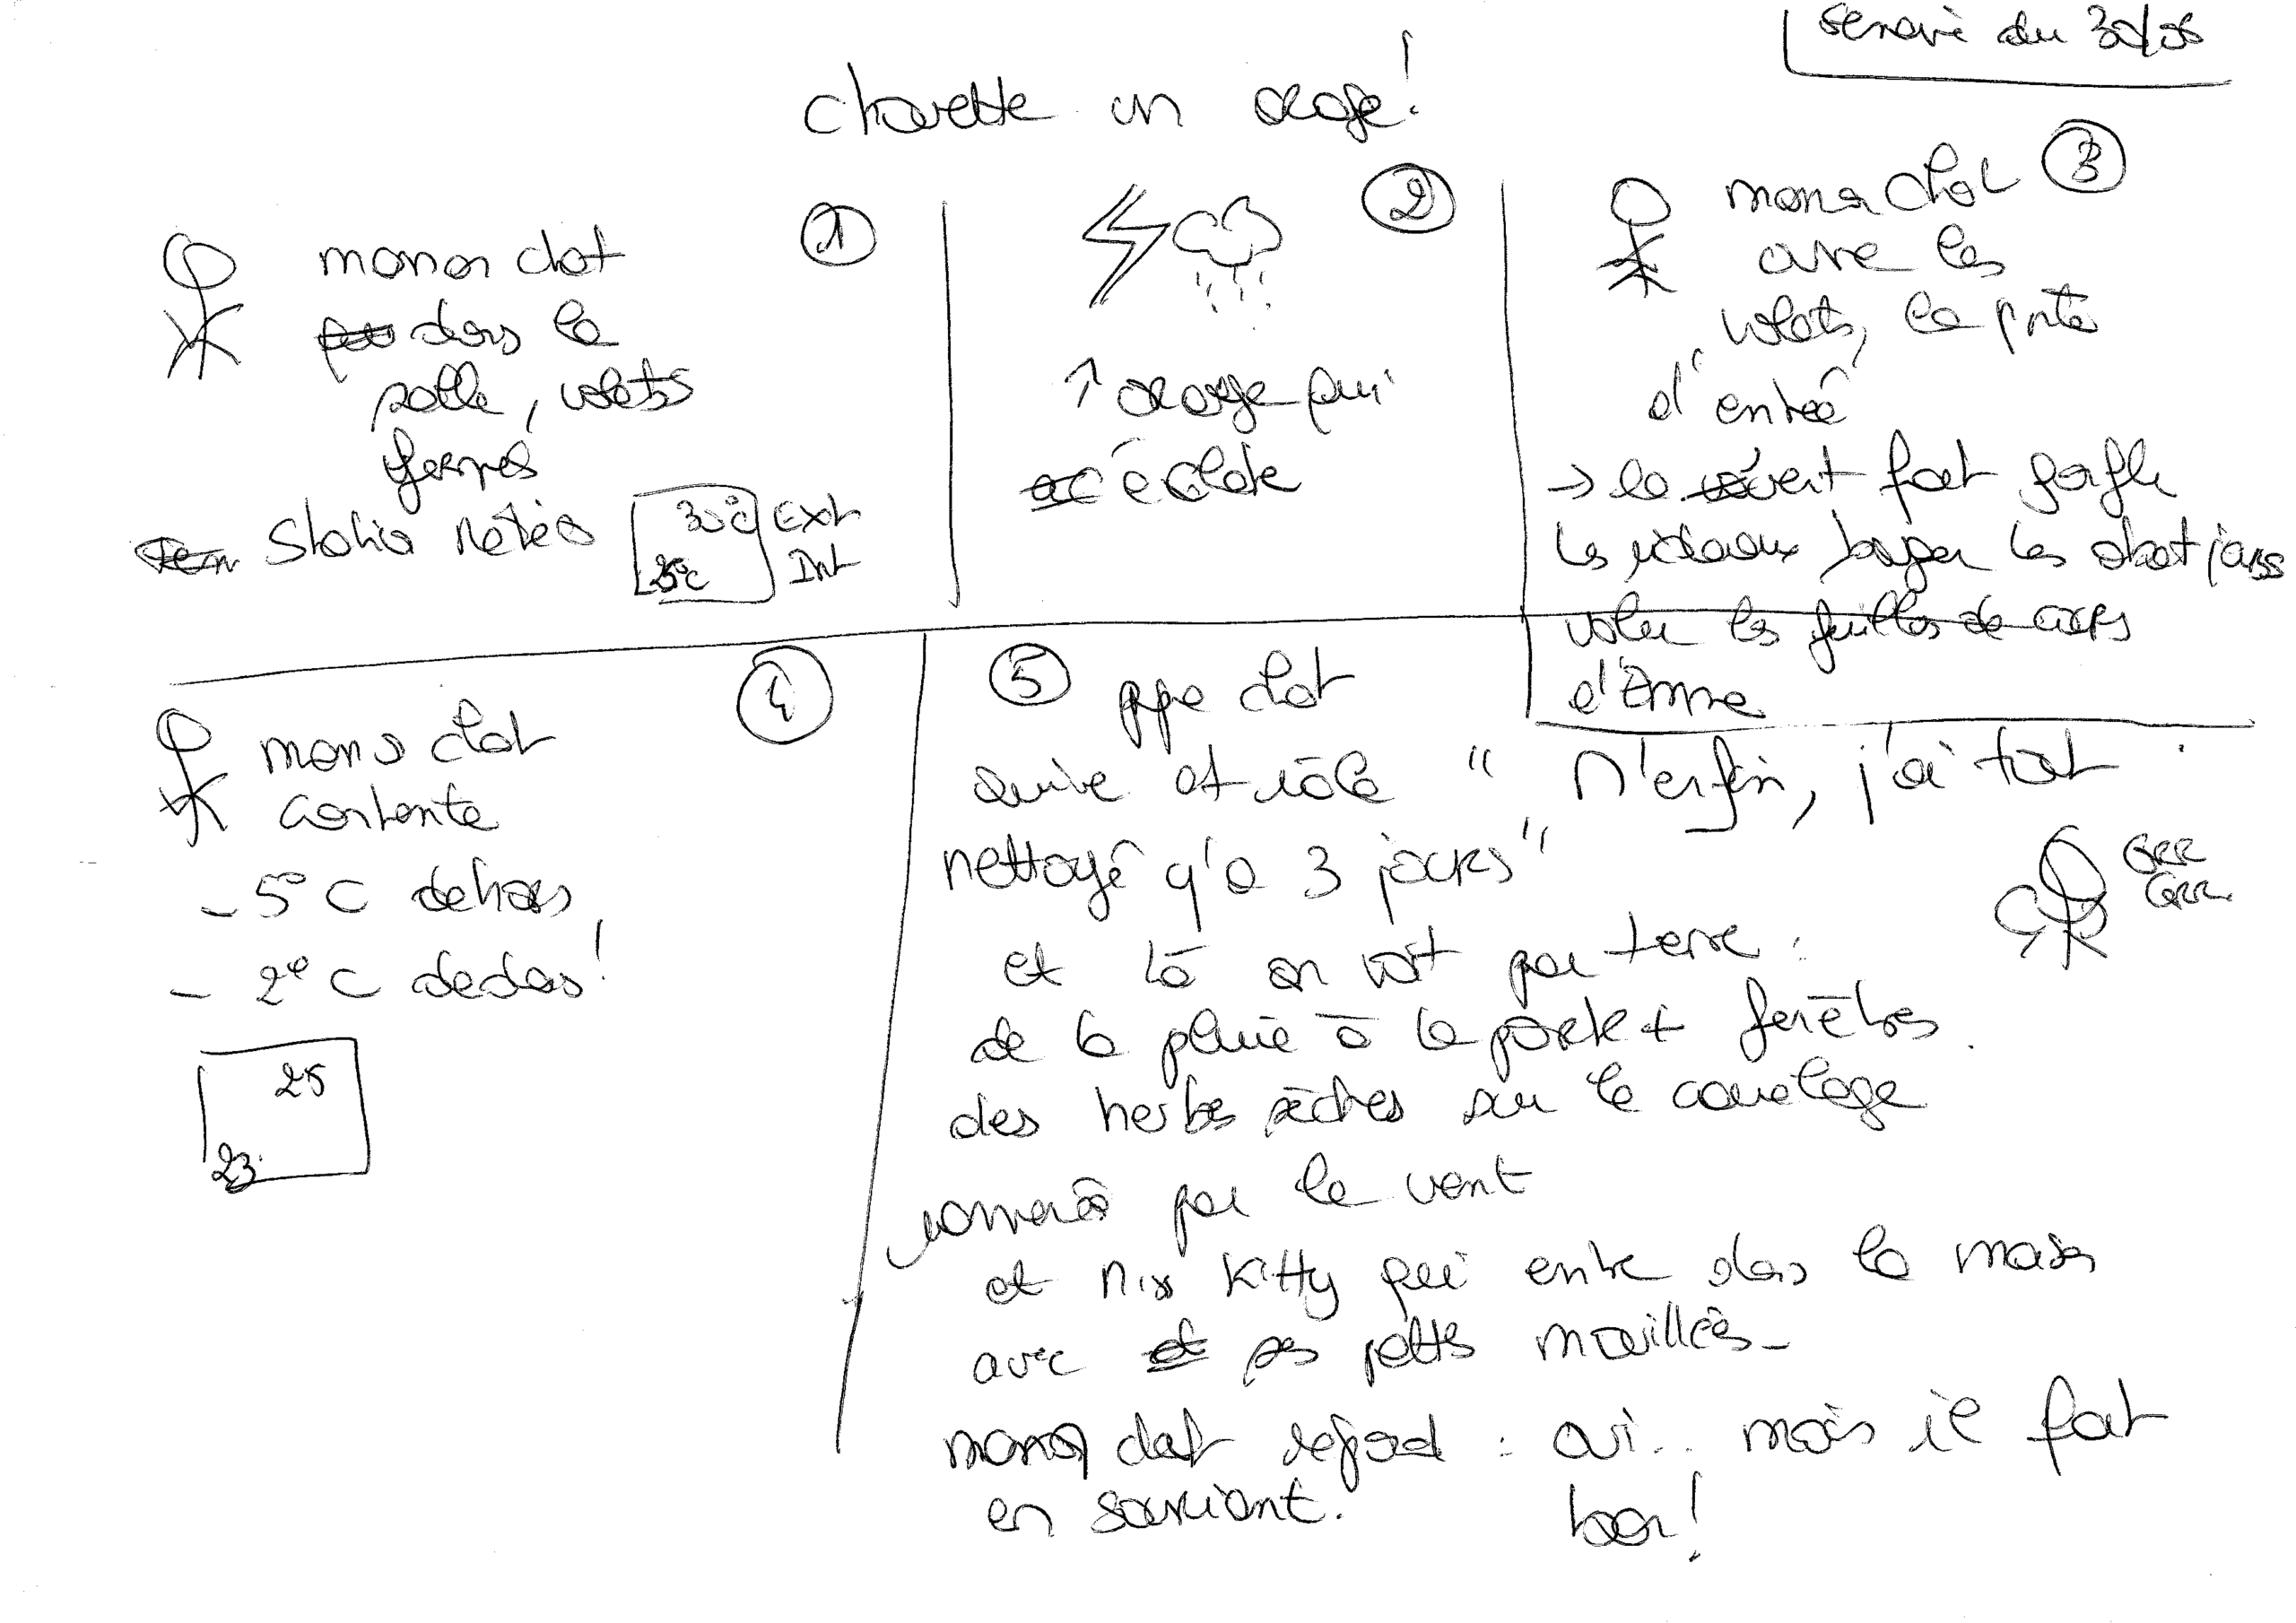 semaine du 30/06
chouette un orage!
1
maman chat
dans la
salle, volets
fermés
Station météo
30°C Ext
25°C Int
2
↑ orage qui
éclate
3
maman chat
ouvre les
volets, la porte
d'entrée
→ le vent fait gonfler
les rideaux bouger les abat jours
voler les feuilles de cours
d'Emma
4
maman chat
contente
- 5°C dehors
- 2°C dedans!
25
23
5
papa chat
arrive et râle " M'enfin, j'ai tout
nettoyé y'a 3 jours"
GRR
GRR
et là on voit par terre :
de la pluie à la porte + fenêtres.
des herbes sèches sur le carrelage
ramenées par le vent
et Nix Kitty qui entre dans la maison
avec ses pattes mouillées
maman chat répond : oui.. mais il fait
en souriant. bon!